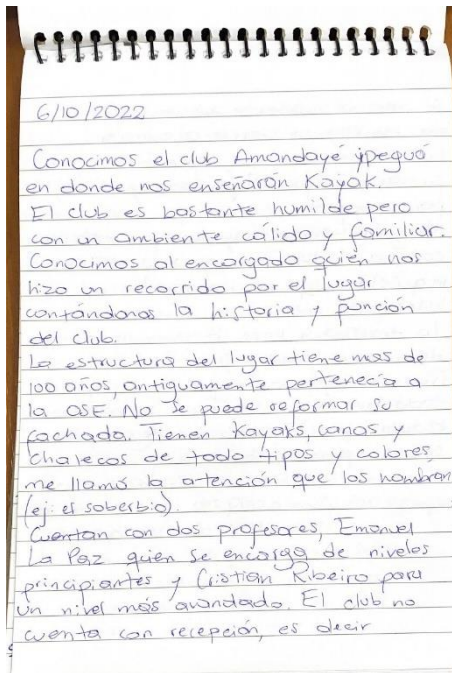 6/10/2022
Conocimos el club Amandayé ypeguá
en donde nos enseñarán Kayak.
El club es bastante humilde pero
con un ambiente cálido y familiar.
Conocimos al encargado quién nos
hizo un recorrido por el lugar
contándonos la historia y función
del club.
La estructura del lugar tiene mas de
100 años, antiguamente pertenecía a
la OSE. No se puede reformar su
fachada. Tienen Kayaks, canos y
chalecos de todo tipos y colores,
me llamó la atención que los nombran
(ej: el soberbio).
Cuentan con dos profesores, Emanuel
La Paz quien se encarga de niveles
principiantes y Cristian Ribeiro para
un nivel más avandado. El club no
cuenta con recepción, es decir